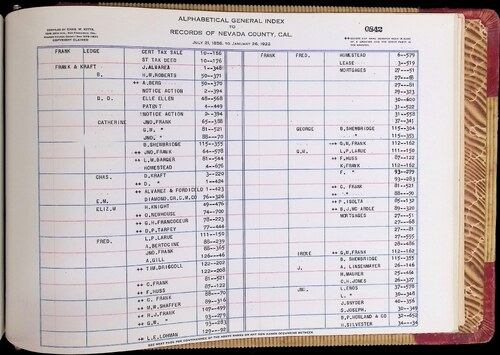 ALPHABETICAL GENERAL INDEX
TO
RECORDS OF NEVADA COUNTY, CAL.
JULY 21, 1856, TO JANUARY 26, 1922
0842
COPYRIGHT CLAIMED
FRANK LEDGE CERT TAX SALE 10—166
ST TAX DEED 10—176
FRANK & KRAFT J.ALVAREZ 1—348
B. H.W.ROBERTS 50—371
++ A.BERG 50—370
NOTICE ACTION 2—394
B. D. ELLE ELLEN 48—568
PATENT 4—449
NOTICE ACTION 2—394
CATHERINE JNO.FRANK 65—388
G.W. " 81—521
JNO. " 88—70
B.SHENBRIDGE 115—355
++ JNO.FRANK 64—578
++ L.W.BARGER 81—544
HOMESTEAD 4—675
CHAS. D.KRAFT 3—220
++ D. " 1—424
++ ALVAREZ & FORDICELO 1—423
E.M. DIAMOND.CR.U.M CO 76—326
ELIZ.M H.KNIGHT 49—476
++ O.NEWHOUSE 74—700
++ G.H.FRANCOEUR 78—223
++ D.P.TARFEY 77—444
FRED. L.P.LARUE 111—150
A.BERTOLINE 88—239
JNO.FRANK 88—365
A.GILL 126—46
++ TIM.DRISCOLL 122—202
122—208
++ C.FRANK 81—521
++ F.HUSS 89—122
++ G.FRANK 88—70
++ H.W.SHAFFER 89—314
++ H.J.FRANK 107—499
++ G.W. " 93—279
93—283
++ L.E.LOHMAN 129—92
FRANK FRED. HOMESTEAD 6—579
LEASE 3—519
MORTGAGES 27—51
27—68
27—81
29—323
30—400
31—522
31—558
37—341
GEORGE B.SHENBRIDGE 115—324
" " 115—353
++ G.W.FRANK 112—162
G.H. L.P.LARUE 111—150
++ F.HUSS 87—122
B.FRANK 112—162
F. " 93—279
93—283
++ C.FRANK 81—521
++ " " 88—70
++ P.ISOLTA 85—132
++ B.J.NC ARDLE 89—320
MORTGAGES 27—51
27—68
27—81
27—535
28—486
IRENE ++ G.W.FRANK 112—162
B.SHENBRIDGE 115—355
J. A.LINGENMAYER 26—146
H.MAURER 25—464
C.H.JONES 26—327
JNO. L.ENOS 37—578
L. " 30—348
J.SNYDER 40—356
S.JOSEPH 30—349
D.P.HOLLAND & CO 37—652
H.SILVESTER 34—34